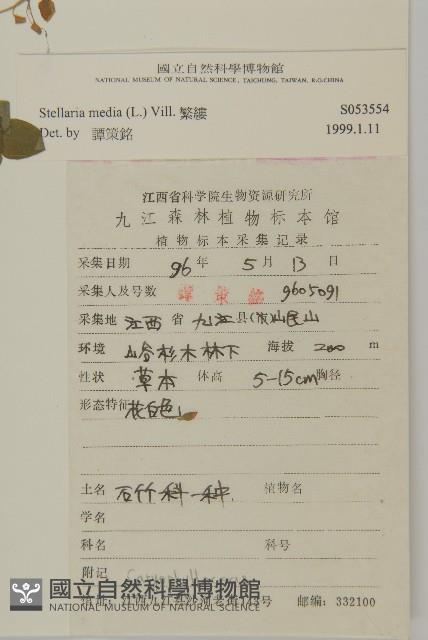 國立自然科學博物館
NATIONAL MUSEUM OF NATURAL SCIENCE, TAICHUNG, TAIWAN, R.O.CHINA
Stellaria media (L.) Vill. 繁縷 S053554
Det. by 譚策銘 1999.1.11
江西省科学院生物资源研究所
九江森林植物标本馆
植物标本采集记录
采集日期 96 年 5 月 13 日
采集人及号数 譚策銘 9605091
采集地 江西 省 九江 县(市) 岷山
环境 山谷杉木林下 海拔 200 m
性状 草本 体高 5-15cm 胸径
形态特征 花白色
土名 石竹科一种 植物名
学名
科名 科号
附记
國立自然科學博物館
NATIONAL MUSEUM OF NATURAL SCIENCE
江西九江县沙河 143号 邮编: 332100